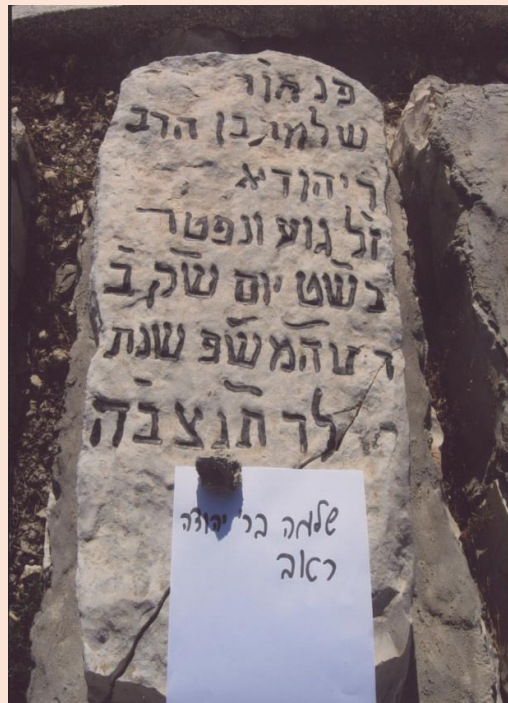 פנ אור
שלמו בן הרב
ר יהודא
זל גוע ונפטר
בשט יום שק ב
המשפ שנת
לך תנצבה
שלמה בר' יהודה
ראוב